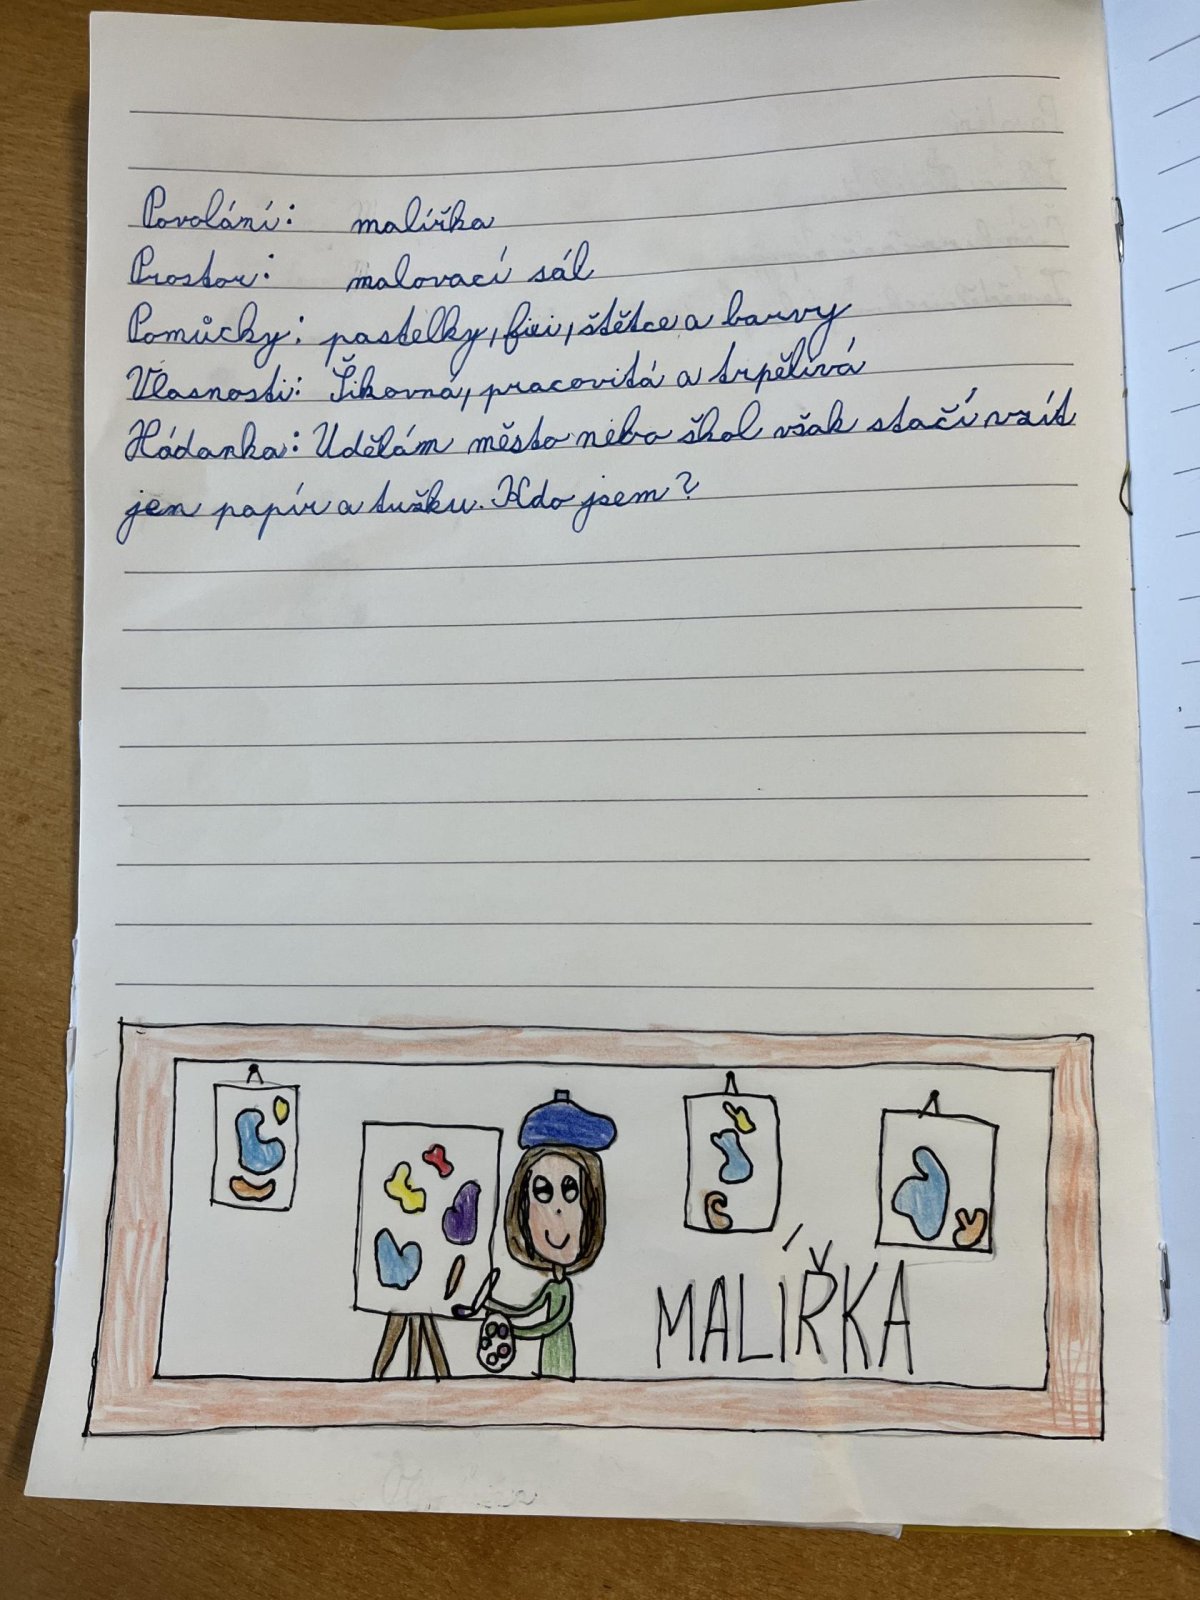 Povolání: malířka
Prostor: malovací sál
Pomůcky: pastelky, fixi, štětce a barvy
Vlasnosti: Šikovná, pracovitá a trpělivá
Hádanka: Udělám město nebo škol však stačí vzít
jen papír a tužku. Kdo jsem?
MALÍŘKA